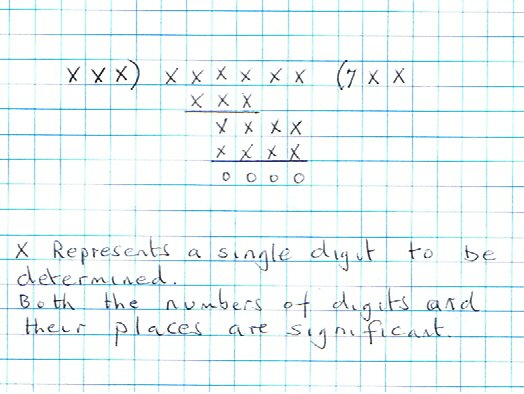 X X X ) X X X X X X ( 7 X X
X X X
X X X X
X X X X
0 0 0 0
X Represents a single digit to be
determined.
Both the numbers of digits and
their places are significant.